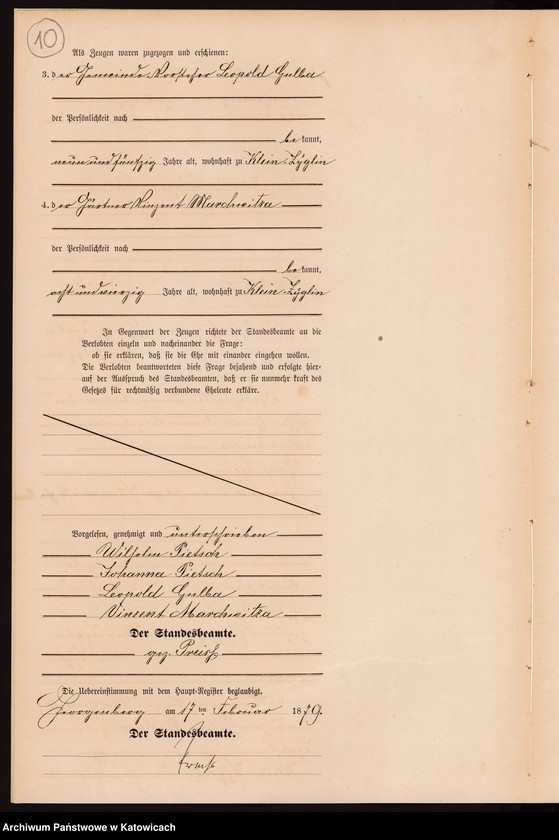 10
Als Zeugen waren zugezogen und erschienen:
3. der Gemeinde-Vorsteher Leopold Gulba
der Persönlichkeit nach
bekannt,
neun und fünfzig Jahre alt, wohnhaft zu Klein-Zyglin
4. der Gärtner Vinzent Marchwitza
der Persönlichkeit nach
bekannt,
acht und vierzig Jahre alt, wohnhaft zu Klein-Zyglin
In Gegenwart der Zeugen richtete der Standesbeamte an die
Verlobten einzeln und nacheinander die Frage:
ob sie erklären, daß sie die Ehe mit einander eingehen wollen.
Die Verlobten beantworteten diese Frage bejahend und erfolgte hier-
auf der Ausspruch des Standesbeamten, daß er sie nunmehr kraft des
Gesetzes für rechtmäßig verbundene Eheleute erkläre.
Vorgelesen, genehmigt und unterschrieben
Wilhelm Pietsch
Johanna Pietsch
Leopold Gulba
Vincent Marchwitza
Der Standesbeamte.
gez. Preiss
Die Uebereinstimmung mit dem Haupt-Register beglaubigt.
Georgenberg am 17ten Februar 1879.
Der Standesbeamte.
Archiwum Państwowe w Katowicach